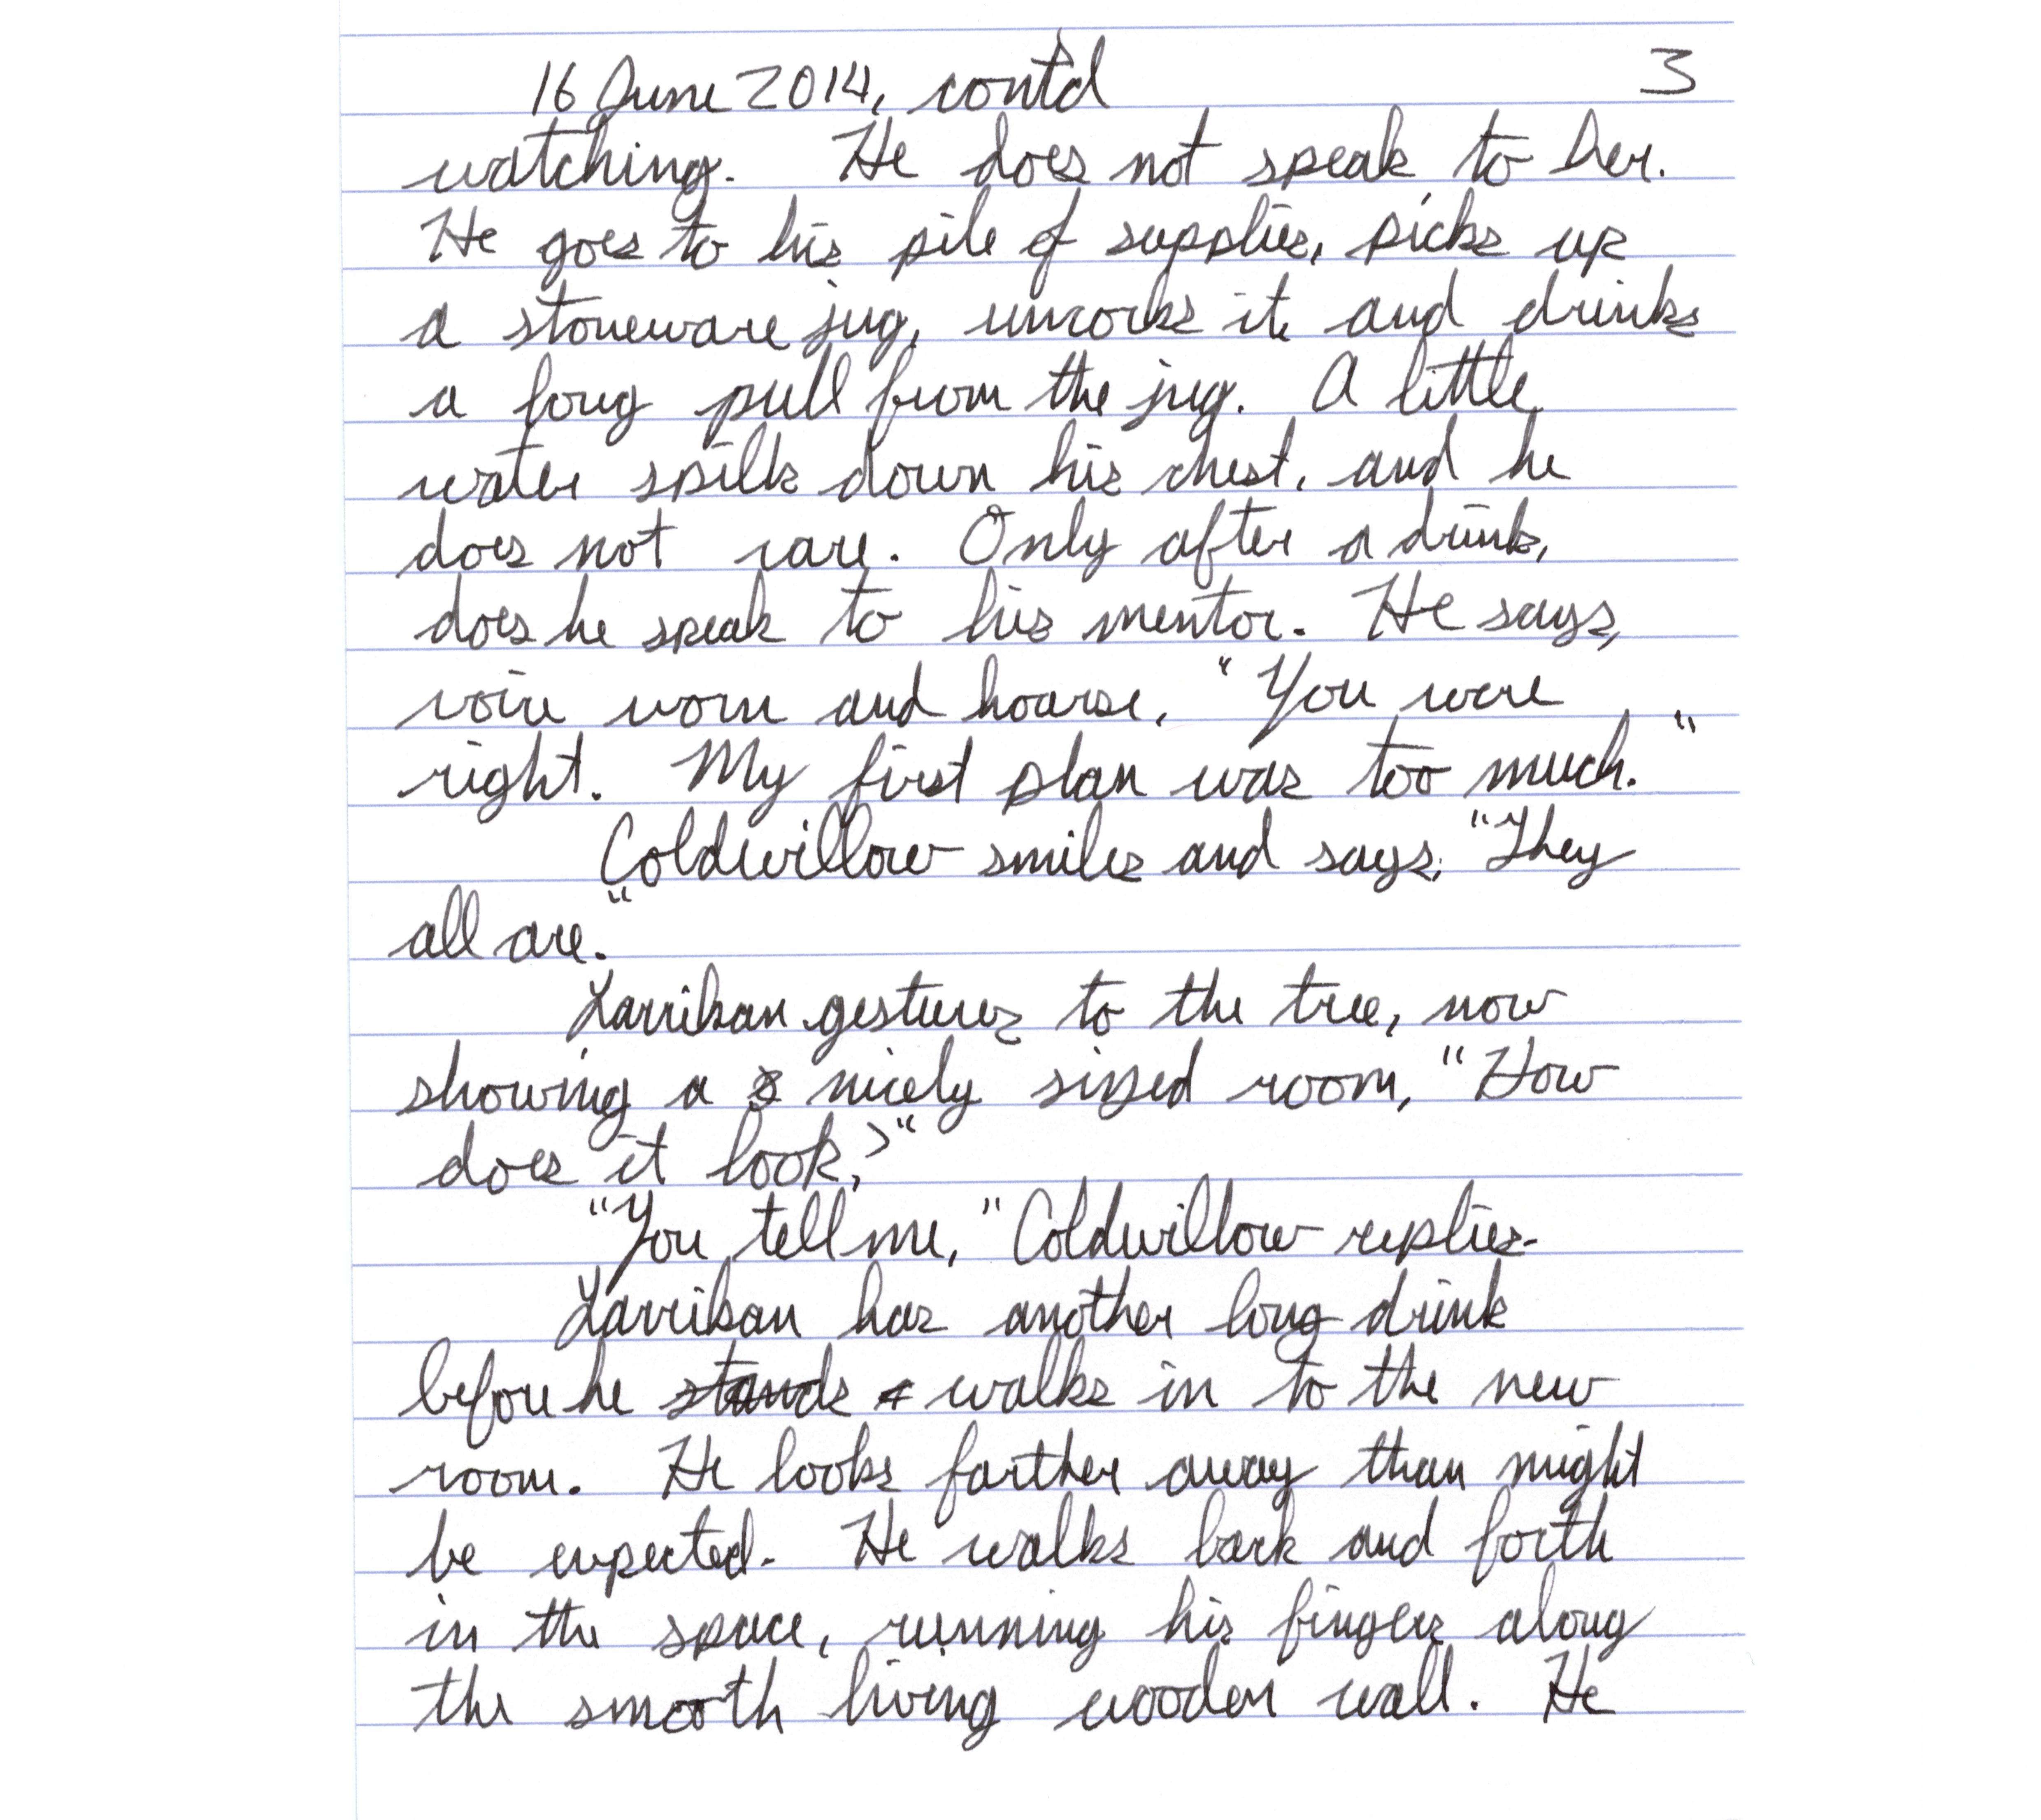 16 June 2014, cont'd 3
watching. He does not speak to her.
He goes to his pile of supplies, picks up
a stoneware jug, uncorks it, and drinks
a long pull from the jug. A little
water spills down his chest, and he
does not care. Only after a drink,
does he speak to his mentor. He says,
voice worn and hoarse, "You were
right. My first plan was too much."
Coldwillow smiles and says, "They
all are."
Larrikan gestures to the tree, now
showing a nicely sized room, "How
does it look?"
"You tell me," Coldwillow replies.
Larrikan has another long drink
before he stands & walks in to the new
room. He looks farther away than might
be expected. He walks back and forth
in the space, running his fingers along
the smooth living wooden wall. He